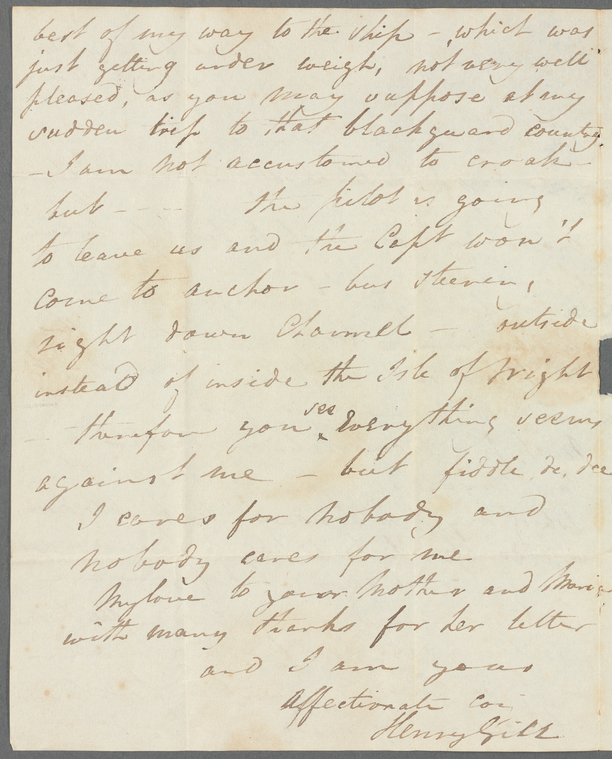 best of my way to the ship - which was
just getting under weigh, not very well
pleased, as you may suppose at my
sudden trip to that blackguard country.
- I am not accustomed to croak -
but - - - the pilot is going
to leave us and the Capt won't
come to anchor - but steering
right down Channel - outside
instead of inside the Isle of Wright
- therefore you see everything seems
against me - but fiddle de dee
I cares for nobody and
nobody cares for me
My love to your Mother and Maria
with many thanks for her letter
and I am yours
affectionate
Henry Gill